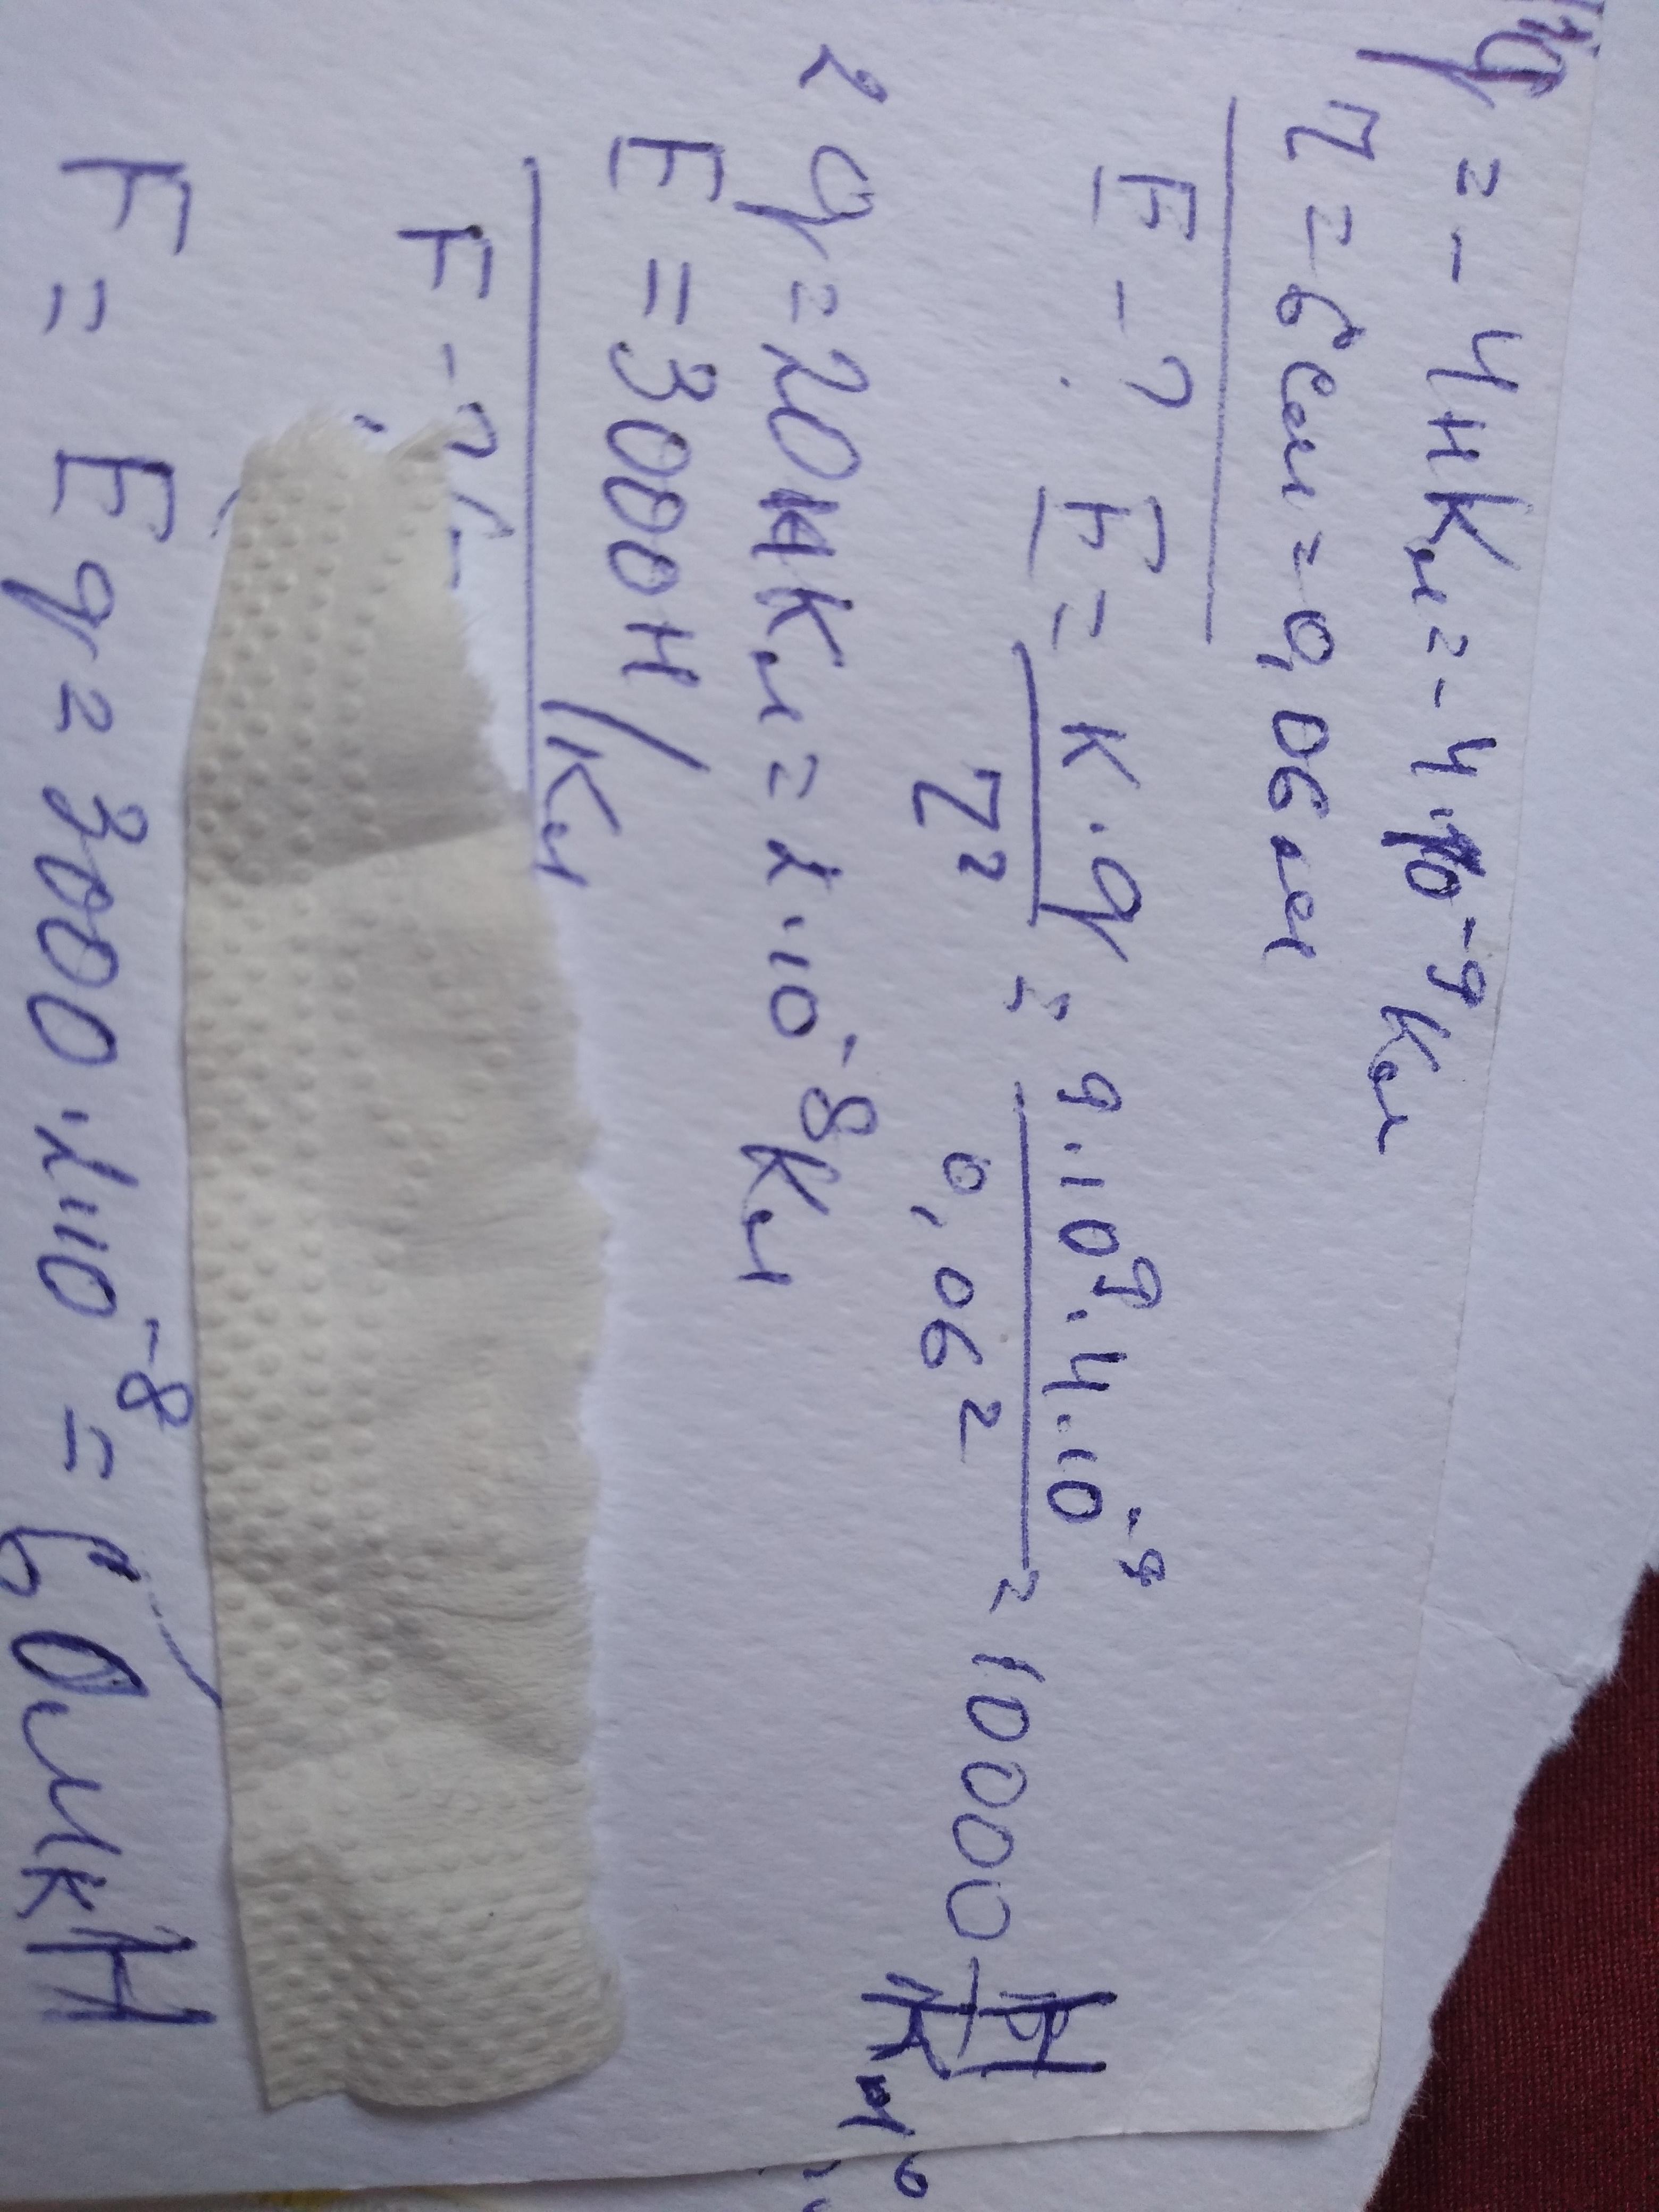 q = - 4нКл = - 4·10⁻⁹Кл
r = 6см = 0,06м
E - ?
E = K·q / r² = 9·10⁹·4·10⁻⁹ / 0,06² = 10000 Н/Кл
2 q = 20нКл = 2·10⁻⁸Кл
E = 3000Н/Кл
F - ?
F = Eq = 3000·2·10⁻⁸ = 60мкН